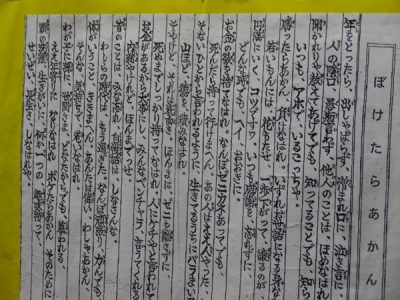 ぼけたらあかん
年をとったら、出しゃばらず、憎まれ口に、泣き言に
人の蔭口、愚痴言わず、他人のことは、ほめなはれ
聞かれりゃ教えてあげても、知ってることでも、知ら
いつも、アホで、いるこっちゃ。
勝ったらあかん、負けなはれ、いずれお世話になる身なら
若いもんには、花もたせ、一歩下がって、譲るのが
円満にいく、コツですわ、いつも感謝を、忘れずに、
どんな時でも、へえ、おおきに
お金の欲を、捨てなはれ、なんぼゼニカネあっても、
死んだら持って行けまへん、あの人はええ人やった、
そないに人から言われるよう、生きてるうちに
山ほど、徳を、積みなはれ
ほんまはゼニを離さずに、
死ぬまでしっかり、持ってなはれ、人にケチやと言われても
お金があるから大事にし、みんなベンチャラ、言うてくれる
内緒やけれど、ほんまだっせ。
昔のことは、みな忘れ、自慢話は、しなはんな、
わしらの時代は、もう過ぎた、なんぼ頑張り、力んでも、
体がいうこと、ききまへん、あんたは偉い、わしゃあかん、
そんな気持ちで、おりなはれ、
わが子に孫に、世間さま、どなたからでも、慕われる、
ええ年寄りに、なりなはれ、ボケたらあかん、そのために
頭の洗濯、生きがいに、何か一つの、趣味持って、
せいぜい、長生き、しなはれや、